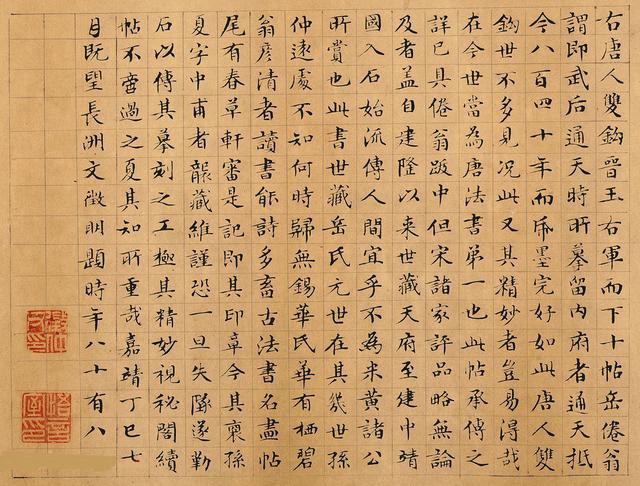 右唐人雙鈎晉王右軍而下十帖岳倦翁
謂即武后通天時所摹留內府者通天抵
今八百四十年而帋墨完好如此唐人雙
鈎世不多見況此又其精妙者豈易得哉
在今世當為唐法書第一也此帖承傳之
詳已具倦翁跋中但宋諸家評品略無論
及者蓋自建隆以来世藏天府至建中靖
國入石始流傳人間宜乎不為米黃諸公
所賞也此書世藏岳氏元世在其幾世孫
仲遠處不知何時歸無錫華氏華有栖碧
翁彥清者讀書能詩多畜古法書名畫帖
尾有春草軒審是記即其印章今其裔孫
夏字中甫者襲藏維謹恐一旦失墜遂勒
石以傳其摹刻之工極其精妙視秘閣續
帖不啻過之夏其知所重哉嘉靖丁巳七
月既望長洲文徵明題時年八十有八